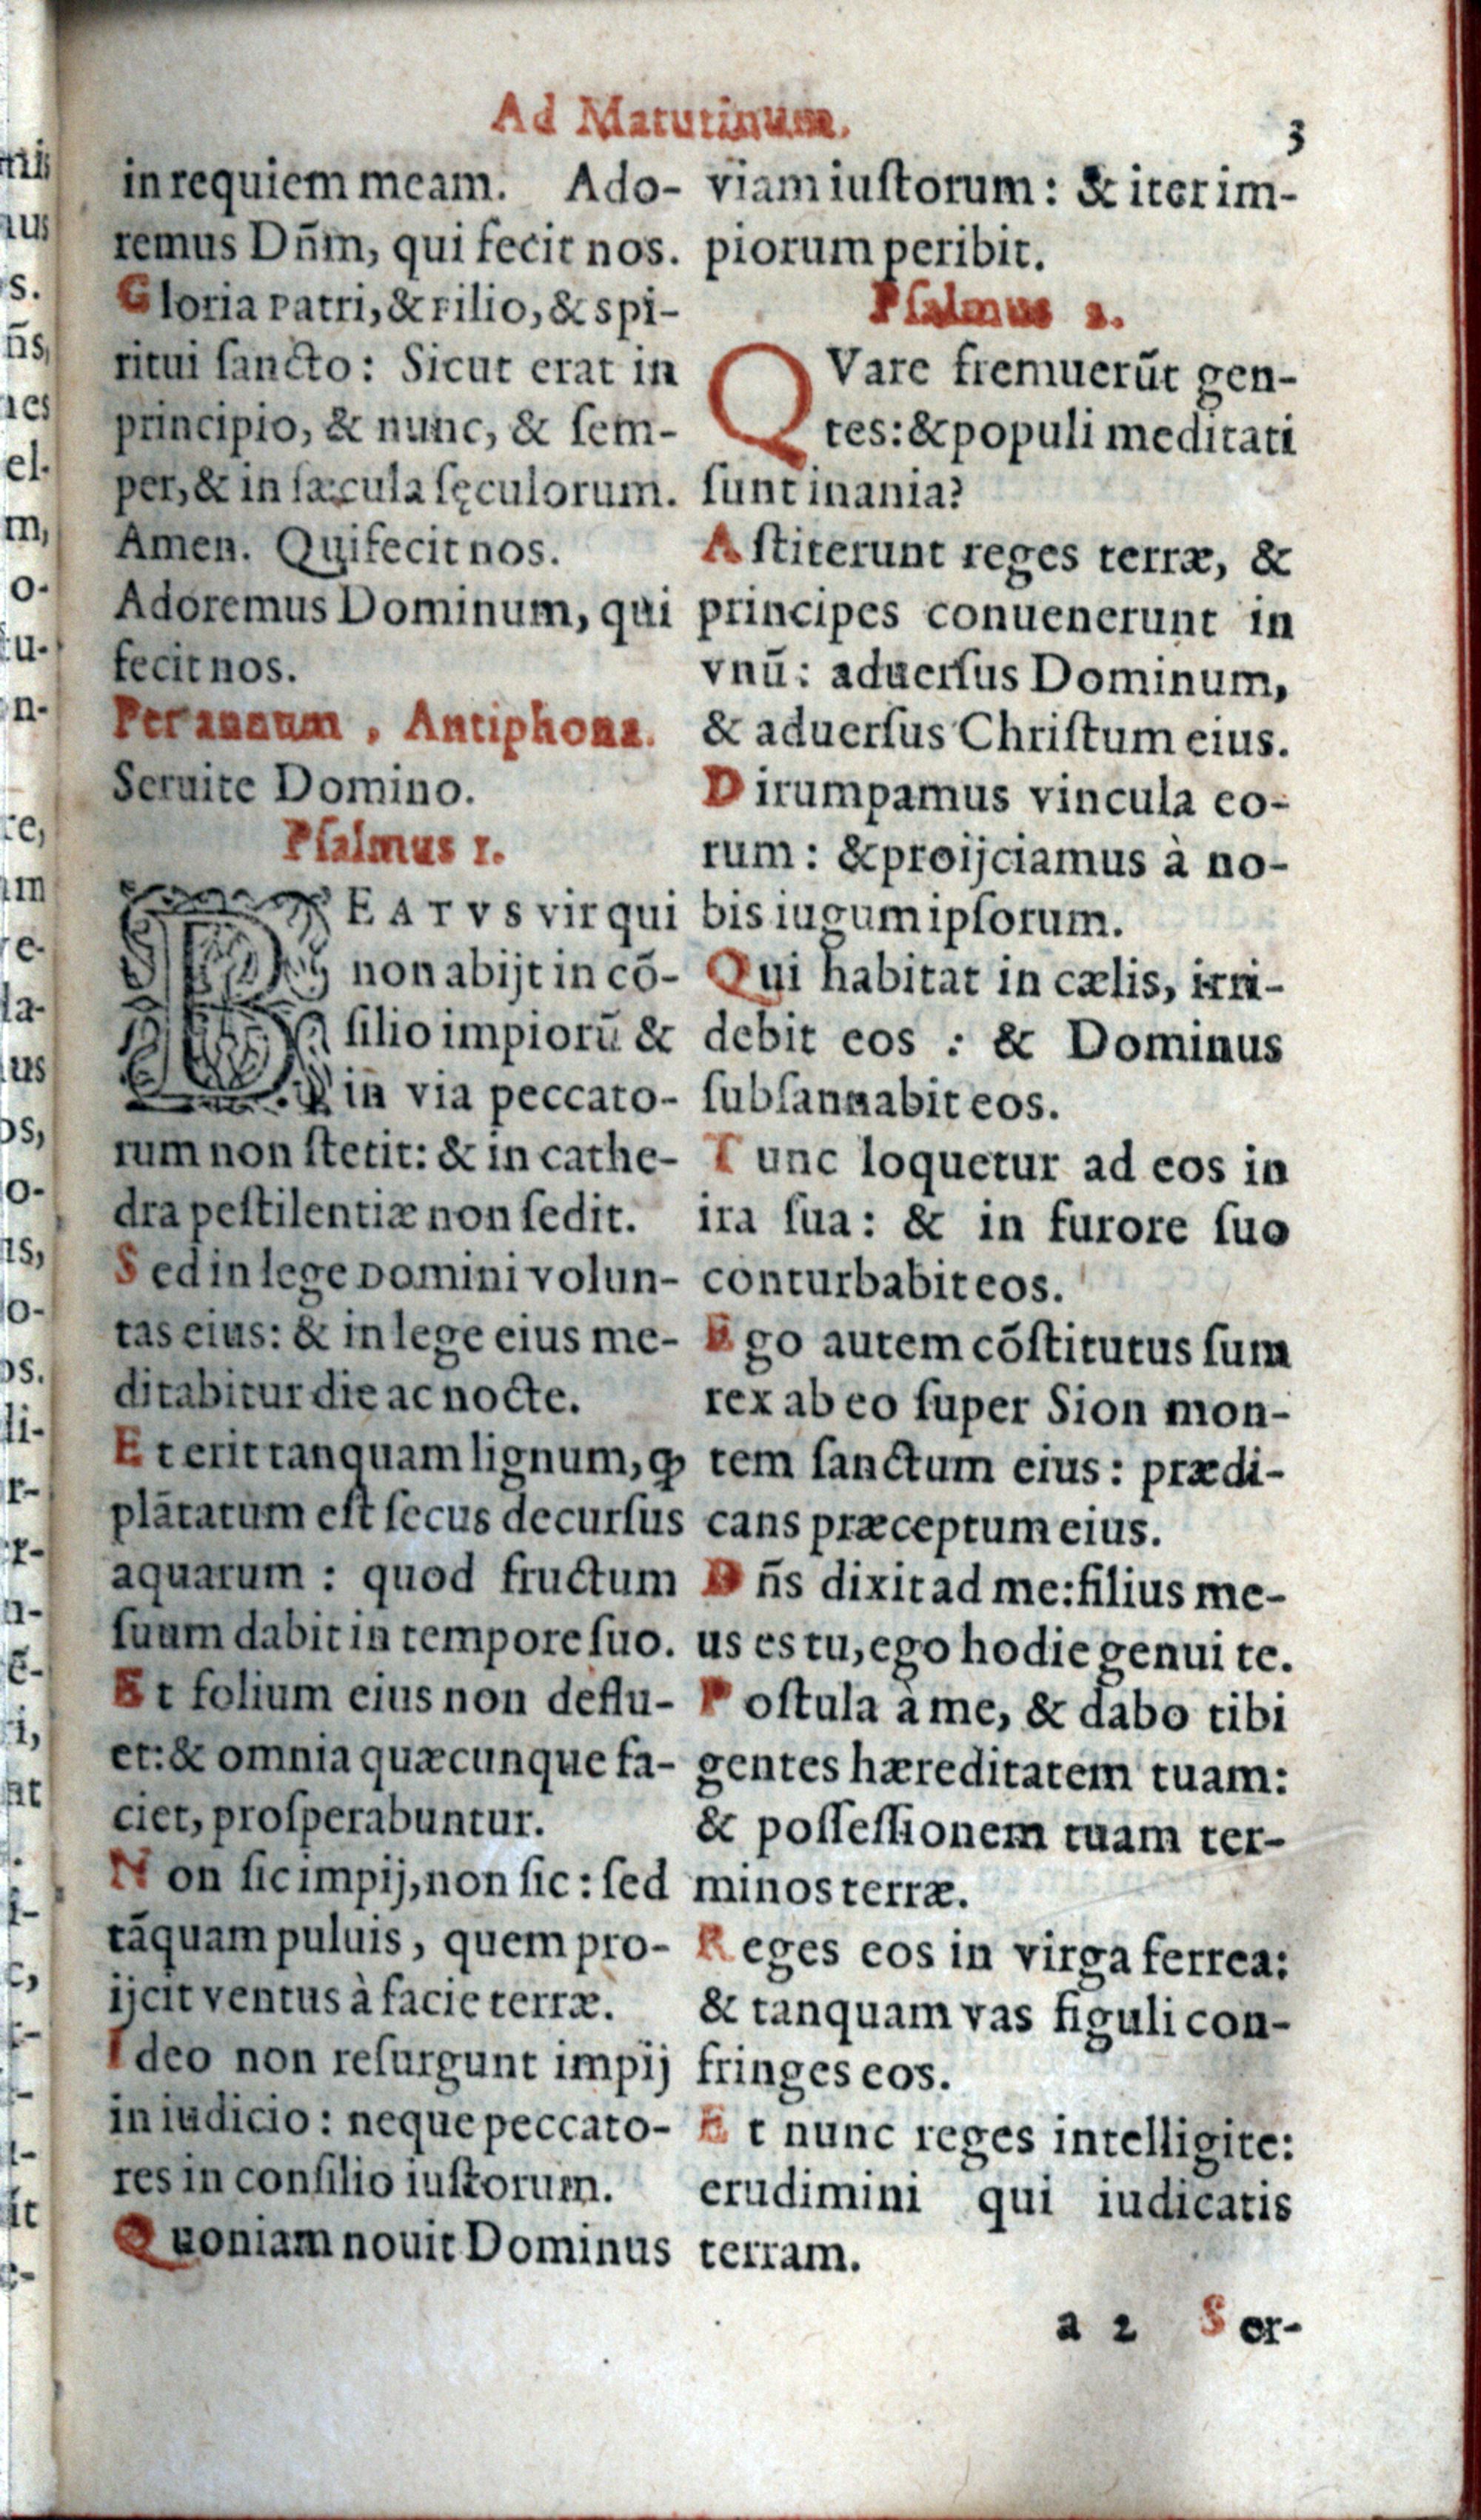 Ad Matutinum.
3
in requiem meam. Ado-
remus Dñm, qui fecit nos.
Gloria Patri, & Filio, & Spi-
ritui ſancto: Sicut erat in
principio, & nunc, & ſem-
per, & in ſæcula ſęculorum.
Amen. Qui fecit nos.
Adoremus Dominum, qui
fecit nos.
Per annum, Antiphona.
Seruite Domino.
Pſalmus 1.
BEATVS vir qui
non abijt in cō-
ſilio impiorū &
in via peccato-
rum non ſtetit: & in cathe-
dra peſtilentiæ non ſedit.
Sed in lege Domini volun-
tas eius: & in lege eius me-
ditabitur die ac nocte.
Et erit tanquam lignum, ꝙ
plātatum eſt ſecus decurſus
aquarum: quod fructum
ſuum dabit in tempore ſuo.
Et folium eius non deflu-
et: & omnia quæcunque fa-
ciet, proſperabuntur.
Non ſic impij, non ſic: ſed
tāquam puluis, quem pro-
ijcit ventus à facie terræ.
Ideo non reſurgunt impij
in iudicio: neque peccato-
res in conſilio iuſtorum.
Quoniam nouit Dominus
viam iuſtorum: & iter im-
piorum peribit.
Pſalmus 2.
QVare fremuerūt gen-
tes: & populi meditati
ſunt inania?
Aſtiterunt reges terræ, &
principes conuenerunt in
vnū: aduerſus Dominum,
& aduerſus Chriſtum eius.
Dirumpamus vincula eo-
rum: & proijciamus à no-
bis iugum ipſorum.
Qui habitat in cælis, irri-
debit eos: & Dominus
ſubſannabit eos.
Tunc loquetur ad eos in
ira ſua: & in furore ſuo
conturbabit eos.
Ego autem cōſtitutus ſum
rex ab eo ſuper Sion mon-
tem ſanctum eius: prædi-
cans præceptum eius.
Dñs dixit ad me: filius me-
us es tu, ego hodie genui te.
Poſtula à me, & dabo tibi
gentes hæreditatem tuam:
& poſſeſſionem tuam ter-
minos terræ.
Reges eos in virga ferrea:
& tanquam vas figuli con-
fringes eos.
Et nunc reges intelligite:
erudimini qui iudicatis
terram.
a 2 Ser-